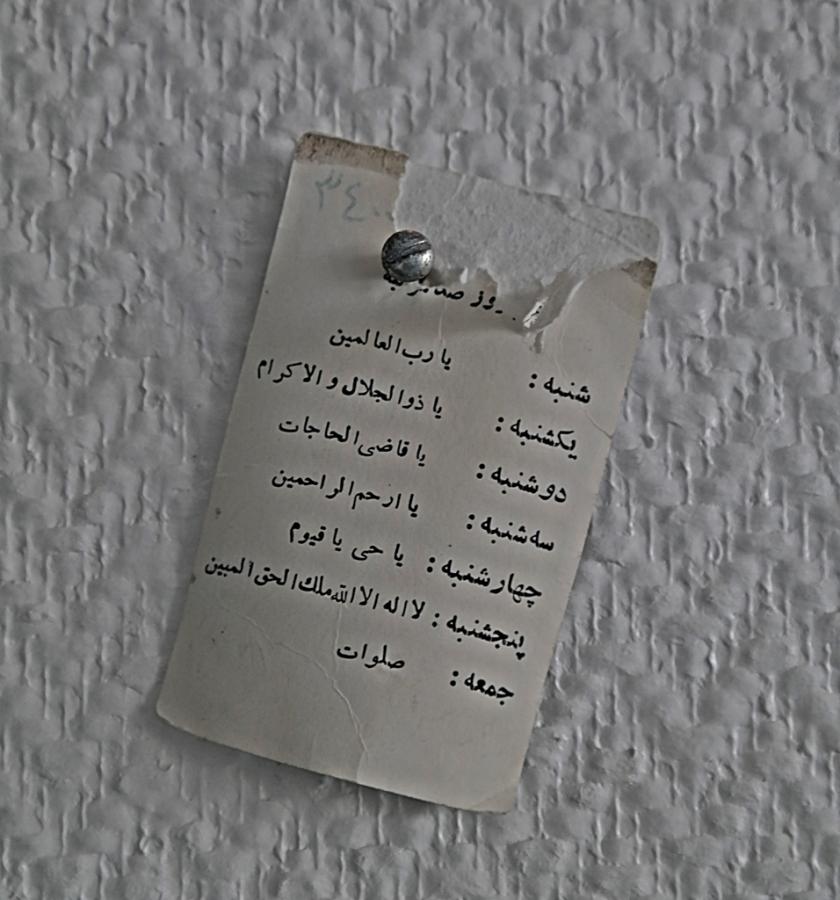 روز صد مرتبه
شنبه : یا رب العالمین
یکشنبه : یا ذوالجلال و الاکرام
دوشنبه : یا قاضی الحاجات
سه شنبه : یا ارحم الراحمین
چهارشنبه : یا حی یا قیوم
پنجشنبه : لا اله الا الله ملك الحق المبین
جمعه : صلوات